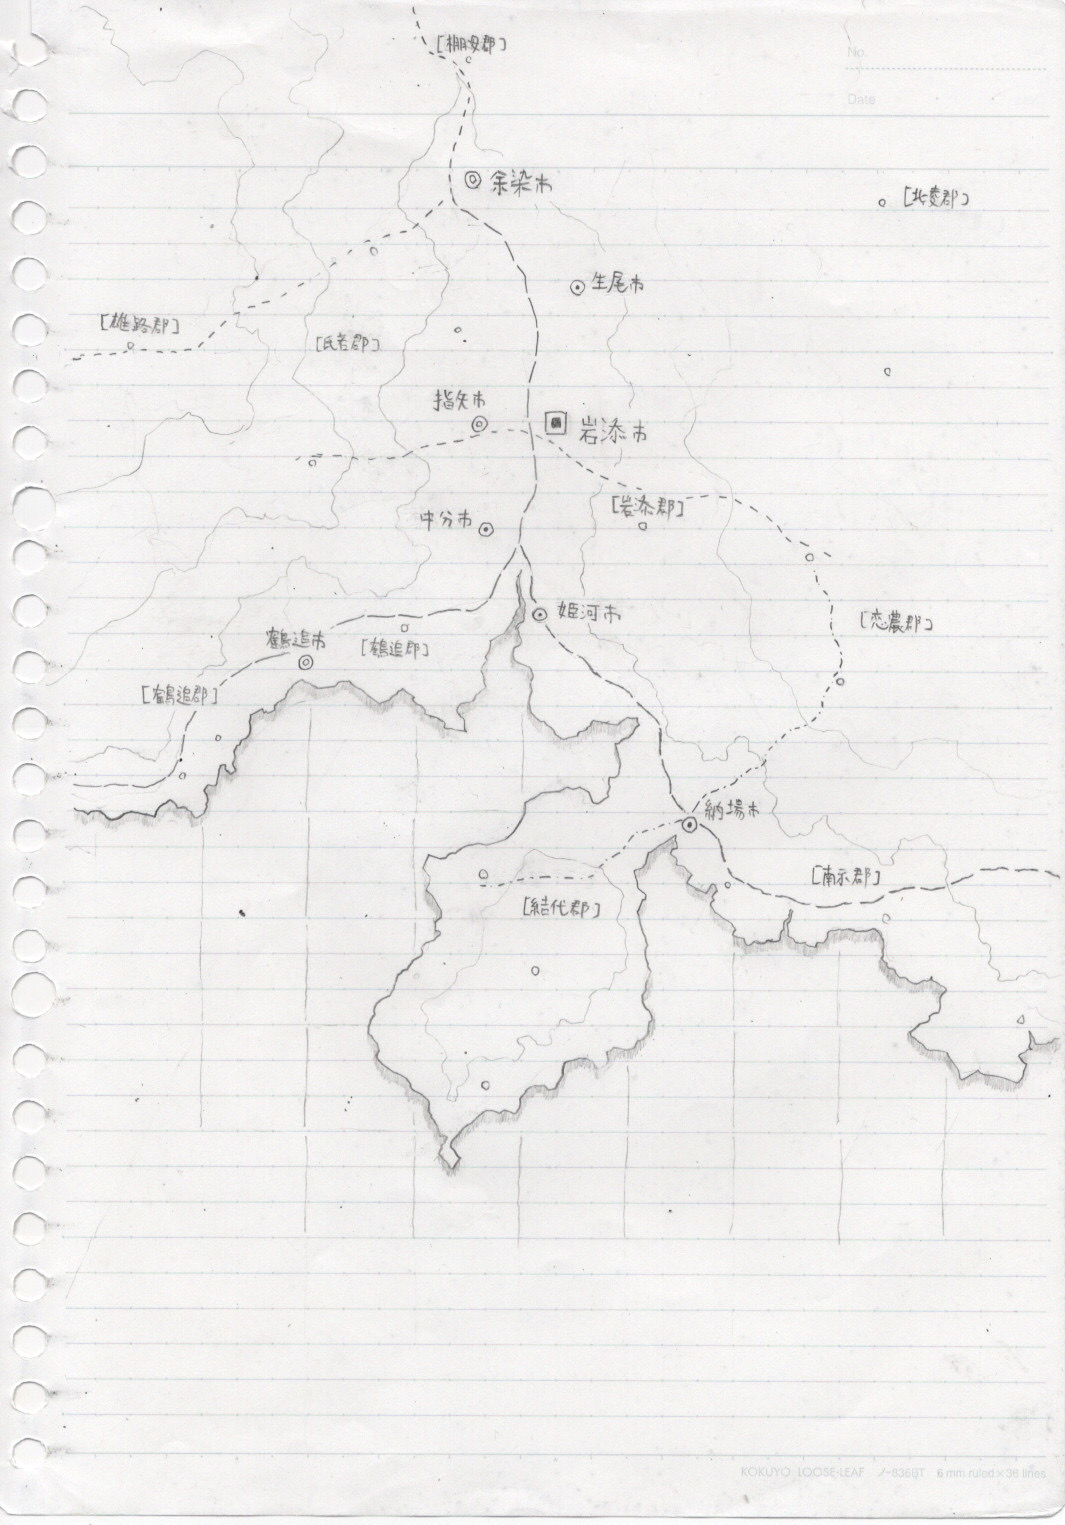 No.
Date
[棚没郡]
余染市
[北菱郡]
生尾市
[雄路郡]
[氏若郡]
指矢市
岩添市
[岩添郡]
中分市
姫河市
[恋農郡]
鶴追市
[鶴追郡]
[鶴追郡]
納場市
[南示郡]
[結代郡]
KOKUYO LOOSE-LEAF ノ-836BT 6 mm ruled×36 lines